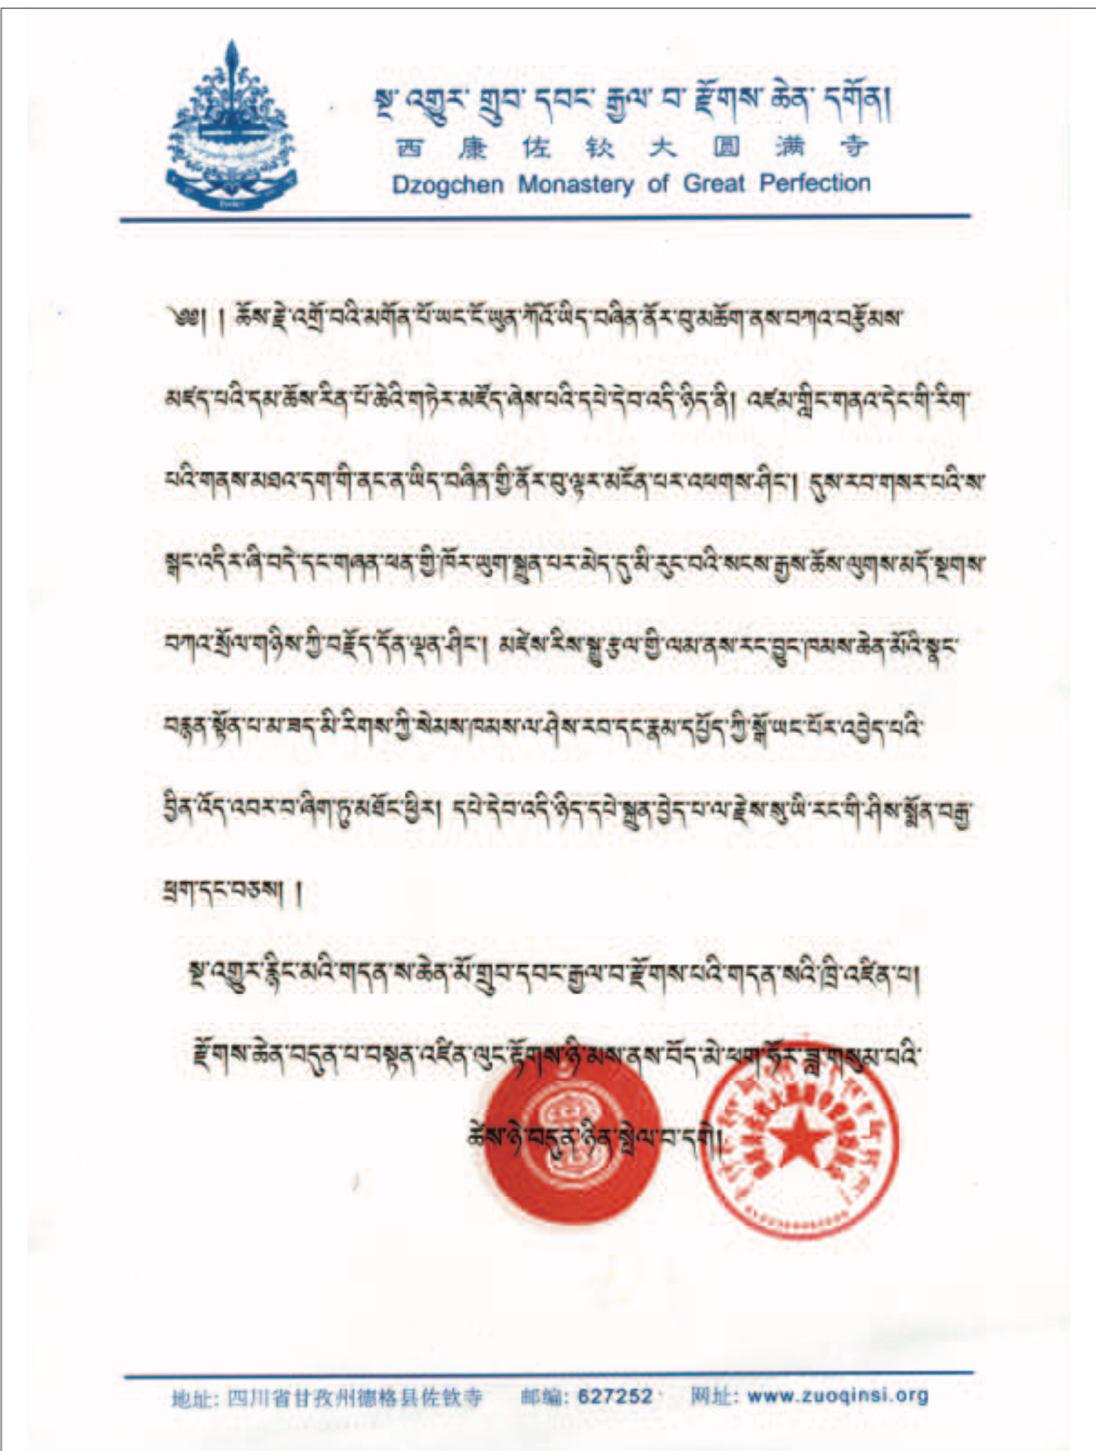 སྔ་འགྱུར་གྲུབ་དབང་རྒྱལ་བ་རྫོགས་ཆེན་དགོན།
西康佐钦大圆满寺
Dzogchen Monastery of Great Perfection
༄༅། །ཆོས་རྗེ་འགྲོ་བའི་མགོན་པོ་ཡང་ངོ་ཡུན་ཀོའོ་ཡིད་བཞིན་ནོར་བུ་མཆོག་ནས་བཀའ་བརྩོམས་
མཛད་པའི་དམ་ཆོས་རིན་པོ་ཆེའི་གཏེར་མཛོད་ཞེས་པའི་དཔེ་དེབ་འདི་ཉིད་ནི། འཛམ་གླིང་གནའ་དེང་གི་རིག་
པའི་གནས་མཐའ་དག་གི་ནང་ན་ཡིད་བཞིན་གྱི་ནོར་བུ་ལྟར་མངོན་པར་འཕགས་ཤིང་། དུས་རབ་གསར་པའི་ས་
སྟེང་འདིར་ཞི་བདེ་དང་གཞན་ཕན་གྱི་ཁོར་ཡུག་སྐྲུན་པར་མེད་དུ་མི་རུང་བའི་སངས་རྒྱས་ཆོས་ལུགས་མདོ་སྔགས་
བཀའ་སྲོལ་གཉིས་ཀྱི་བརྗོད་དོན་ལྡན་ཤིང་། མཛེས་རིས་སྒྱུ་རྩལ་གྱི་ལམ་ནས་རང་བྱུང་ཁམས་ཆེན་མོའི་སྣང་
བརྙན་སྟོན་པ་མ་ཟད་མི་རིགས་ཀྱི་སེམས་ཁམས་ལ་ཤེས་རབ་དང་རྣམ་དཔྱོད་ཀྱི་སྒོ་ཡང་པོར་འབྱེད་པའི་
བྱིན་འོད་འབར་བ་ཞིག་ཏུ་མཐོང་ཕྱིར། དཔེ་དེབ་འདི་ཉིད་དཔེ་སྐྲུན་བྱེད་པ་ལ་རྗེས་སུ་ཡི་རང་གི་ཤིས་སྨོན་བརྒྱ་
ཕྲག་དང་བཅས། །
སྔ་འགྱུར་རྙིང་མའི་གདན་ས་ཆེན་མོ་གྲུབ་དབང་རྒྱལ་བ་རྫོགས་པའི་གདན་སའི་ཁྲི་འཛིན་པ།
རྫོགས་ཆེན་བདུན་པ་བསྟན་འཛིན་ལུང་རྟོགས་ཉི་མས་ནས་བོད་མེ་ཕག་ཧོར་ཟླ་གསུམ་པའི་
ཚེས་ཉེ་བདུན་ཉིན་སྤེལ་བ་དགེ།
地址: 四川省甘孜州德格县佐钦寺 邮编: 627252 网址: www.zuoqinsi.org